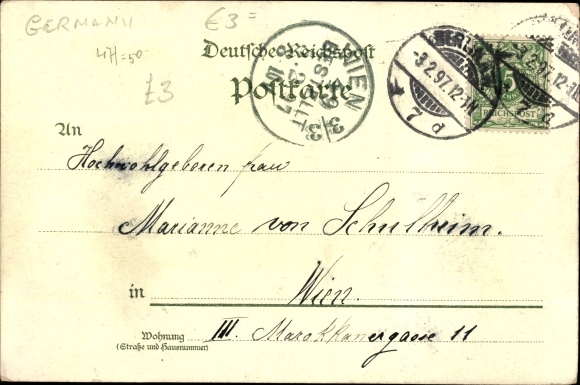 GERMANY
€3=
£3
Deutsche Reichspost
Postkarte
WIEN
BESTELLT
BERLIN
-3.2.97.12-1N
5
REICHSPOST
An
Hochwohlgeboren Frau
Marianne von Schultheim.
in Wien.
Wohnung III. Marokkanergasse 11
(Straße und Hausnummer)